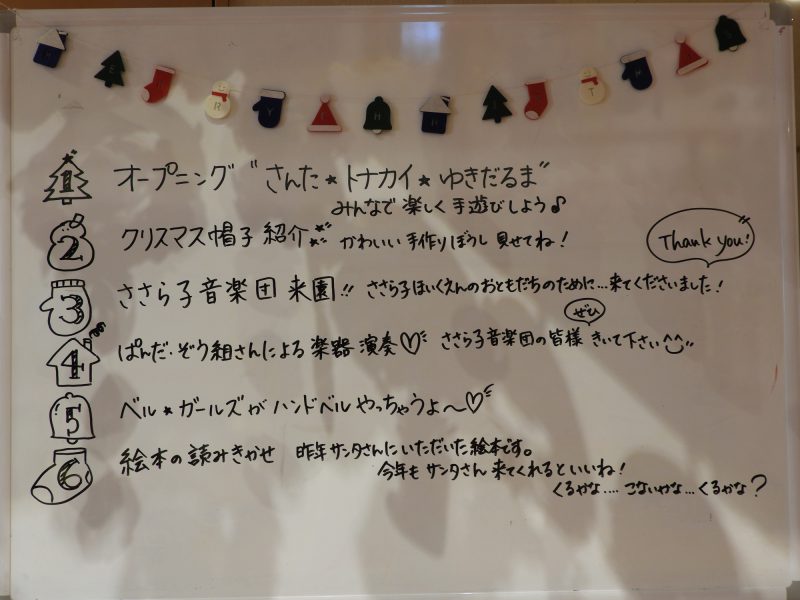 MERRY CHRISTMAS
1 オープニング "さんた★トナカイ★ゆきだるま"
みんなで楽しく手遊びしよう♪
2 クリスマス帽子紹介 かわいい手作りぼうし見せてね!
Thank you!
3 ささら子音楽団来園!! ささら子ほいくえんのおともだちのために…来てくださいました!
ぜひ
4 ぱんだ・ぞう組さんによる楽器演奏♡ ささら子音楽団の皆様きいて下さい^^
5 ベル★ガールズがハンドベルやっちゃうよ〜♡
6 絵本の読みきかせ 昨年サンタさんにいただいた絵本です。
今年もサンタさん来てくれるといいね!
くるかな....こないかな...くるかな?